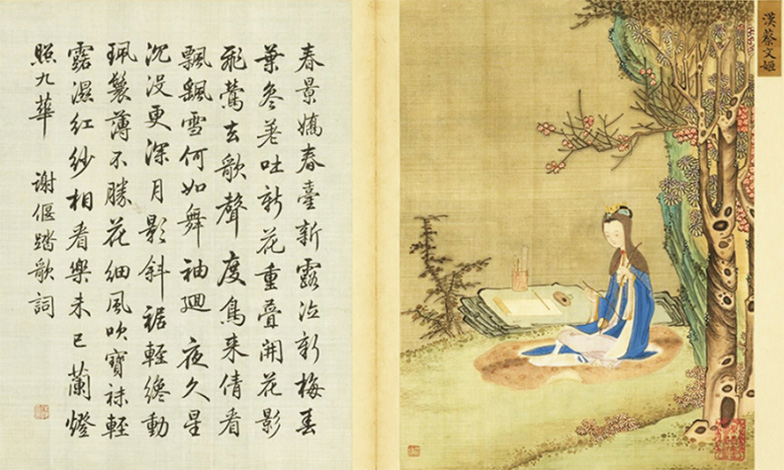 春景嬌春臺新露泣新梅春
葉參差吐新花重疊開花影
飛鶯去歌聲度鳥來倩看
飄颻雪何如舞袖迴 夜久星
沉沒更深月影斜裾輕纔動
珮鬟薄不勝花細風吹寶袜輕
露濕紅紗相看樂未已蘭燈
照九華 謝偃踏歌詞
漢蔡文姬